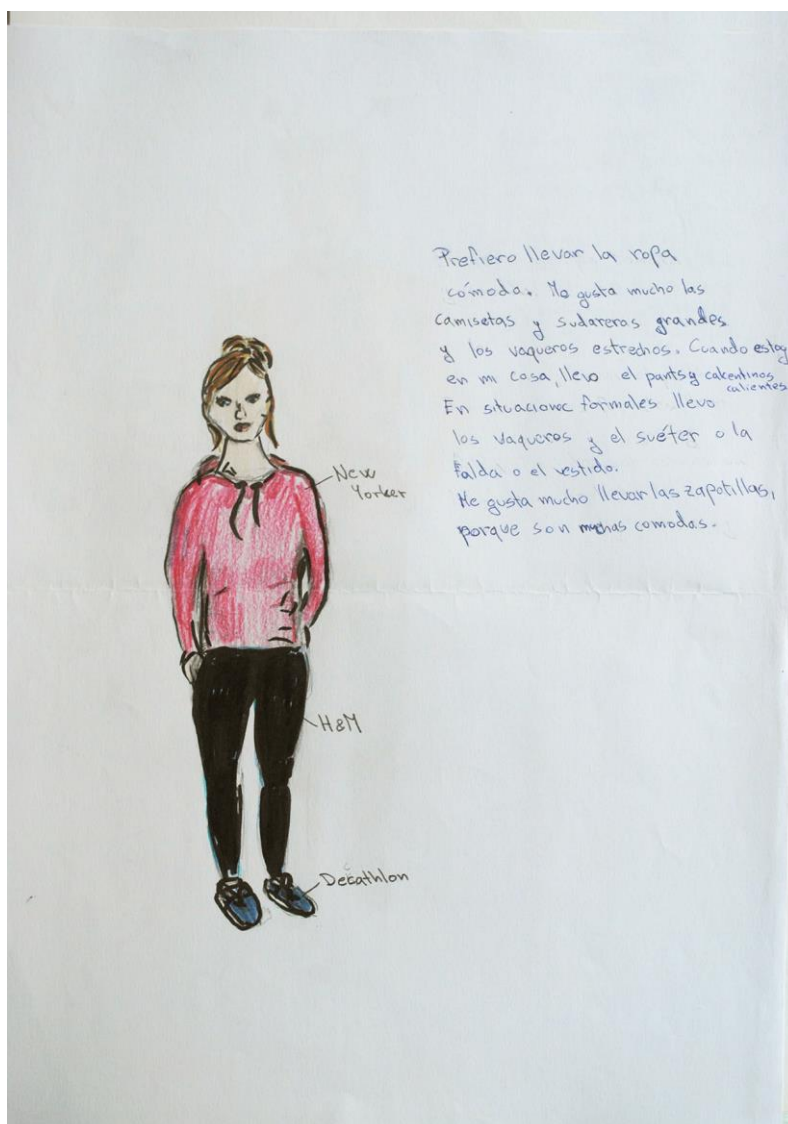 Prefiero llevar la ropa
cómoda. Me gusta mucho las
camisetas y sudareros grandes
y los vaqueros estrechos. Cuando estoy
en mi casa, llevo el pants y
calientes
En situacione formales llevo
los vaqueros y el suéter o la
falda o el vestido.
Me gusta mucho llevar las zapatillas,
porque son muchas comodas.
New
Yorker
H&M
Decathlon